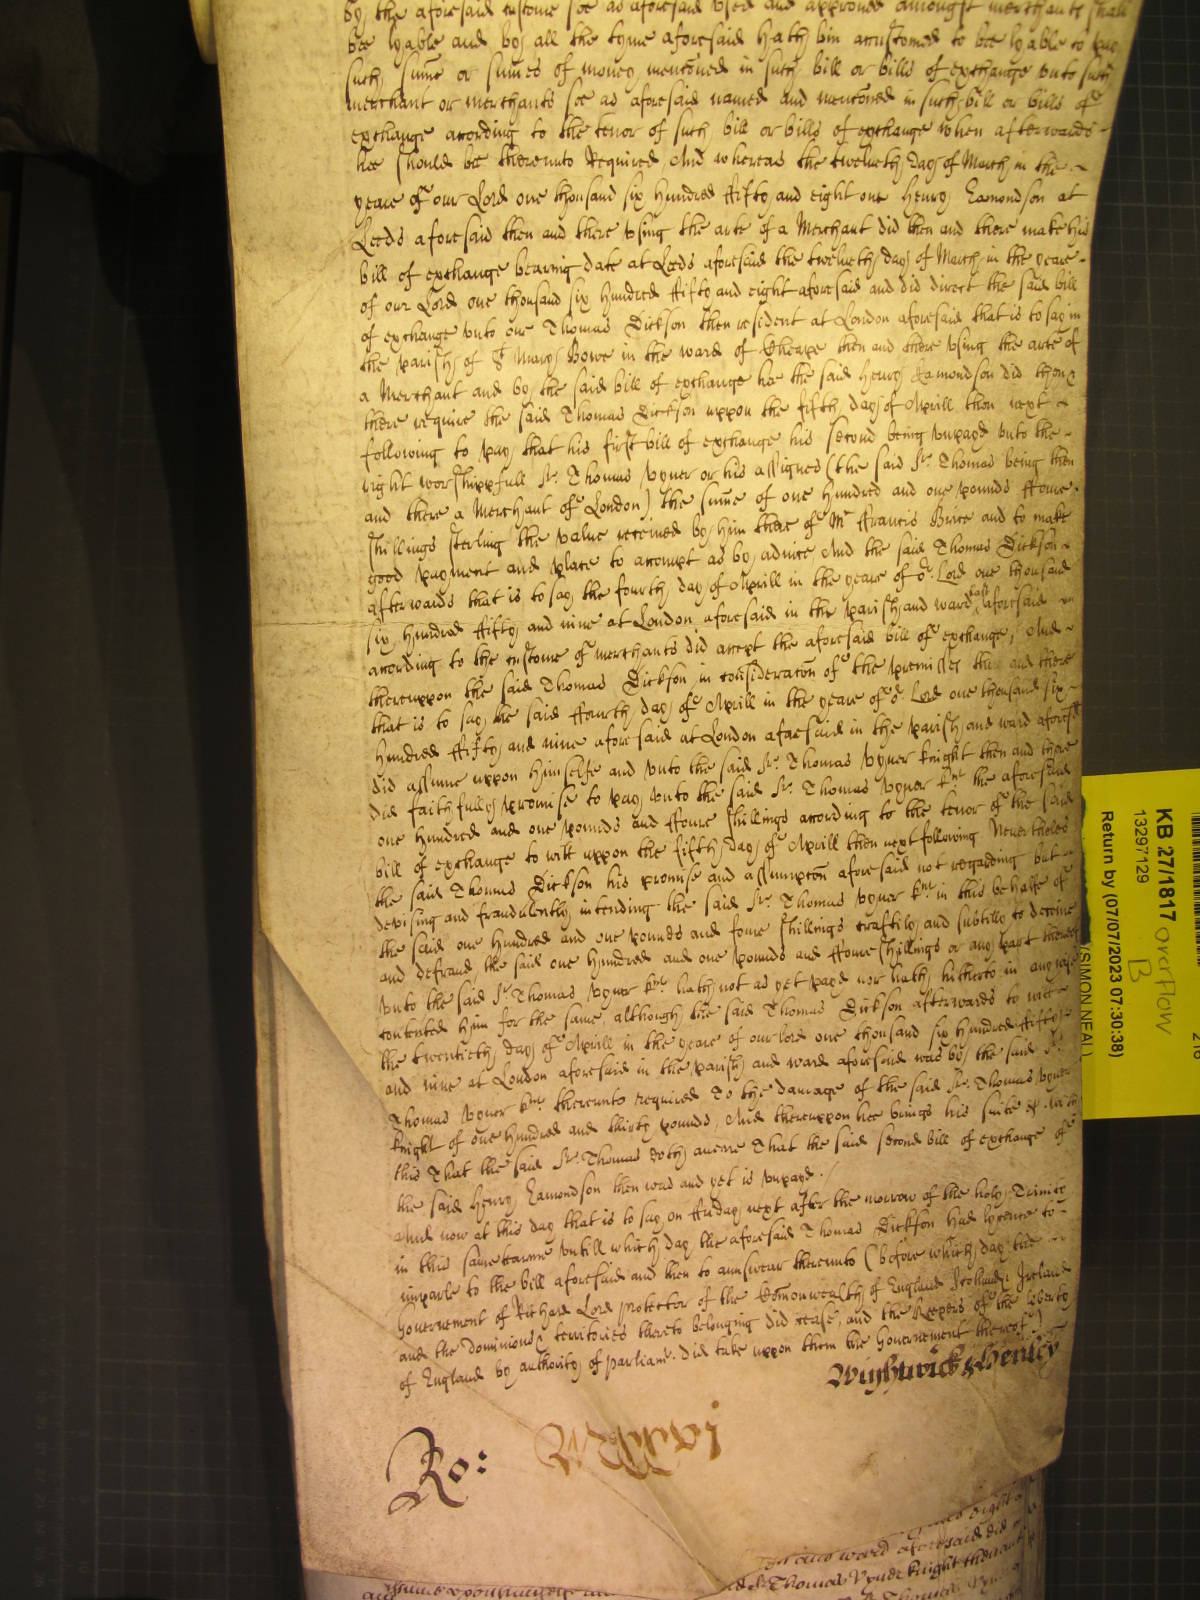 by the aforesaid custome soe as aforesaid used and approved amongst merchants shall
bee lyable and by all the tyme aforesaid hath bin accustomed to bee lyable to pay
such sume or sumes of money mentoned in such bill or bills of exchange unto such
merchant or merchants soe as aforesaid named and mentoned in such bill or bills of
exchange according to the tenor of such bill or bills of exchange when afterwards
hee should bee thereunto Required And whereas the twelveth day of March in the
yeare of our Lord one thousand six hundred fifty and eight one Henry Eamondson at
Leeds aforesaid then and there using the arte of a Merchant did then and there make his
bill of exchange bearing date at Leeds aforesaid the twelveth day of March in the yeare
of our Lord one thousand six hundred fifty and eight aforesaid and did direct the said bill
of exchange unto one Thomas Dickson then resident at London aforesaid that is to say in
the parish of St Mary Bowe in the ward of Cheape then and there using the arte of
a Merchant and by the said bill of exchange hee the said Henry Eamondson did then &
there require the said Thomas Dickson uppon the fifth day of Aprill then next
following to pay that his first bill of exchange his second being unpayd unto the
right worshippfull Sr. Thomas Vyner or his assignes (the said Sr. Thomas being then
and there a Merchant of London) the sume of one hundred and one pounds ffoure
shillings sterling the value received by him there of Mr ffrancis Brice and to make
good payment and place to accompt as by advice And the said Thomas Dickson
afterwards that is to say the fourth day of Aprill in the yeare of or. Lord one thousand
six hundred fifty and nine at London aforesaid in the parish and ward last aforesaid
according to the custome of merchants did accept the aforesaid bill of exchange, And
thereuppon the said Thomas Dickson in consideracon of the premisses then and there
that is to say the said ffourth day of Aprill in the yeare of or. Lord one thousand six
hundred fifty and nine aforesaid at London afaesaid in the parish and ward aforesd
did assume uppon himselfe and unto the said Sr. Thomas Vyner knight then and there
did faithfully promise to pay unto the said Sr. Thomas Vyner knt the aforesaid
one hundred and one pounds and ffoure shillings according to the tenor of the said
bill of exchange to witt uppon the fifth day of Aprill then next following Neverthelesse
the said Thomas Dickson his promise and assumpcon aforesaid not regarding but
devising and fraudulently intending the said Sr. Thomas Vyner knt in this behalfe of
the said one hundred and one pounds and foure shillings craftily and subtilly to deceive
and defraud the said one hundred and one pounds and ffoure shillings or any part thereof
unto the said Sr. Thomas Vyner knt hath not as yet payd nor hath hitherto in any wise
contented him for the same, although the said Thomas Dickson afterwards to witt
the twentieth day of Aprill in the yeare of our lord one thousand six hundred fifty
and nine at London aforesaid in the parish and ward aforesaid was by the said Sr.
Thomas Vyner knt. thereunto required To the damage of the said Sr. Thomas Vyner
knight of one hundred and thirty pounds, And thereuppon hee brings his suite &c. with
this That the said Sr. Thomas doth averre That the said second bill of exchange of
the said Henry Eamondson then was and yet is unpayd. /
And now at this day that is to say on ffriday next after the morrow of the holy Trinity
in this same tearme untill which day the aforesaid Thomas Dickson had lycence to
imparle to the bill aforesaid and then to aunswear thereunto (before which day the
Government of Richard Lord protector of the Comonwealth of England Scotland & Ireland
and the Dominions & territories thereto belonging did cease, and the Keepers of the liberty
of England by authority of parliamt. did take uppon them the Government thereof)
Wightwick & Henley
Ro:
KB 27/1817 overflow
B
13297129
Return by (07/07/2023 07:30:38)
(SIMON NEAL)
and ward aforesaid did
Sr. Thomas Vyner knight then and